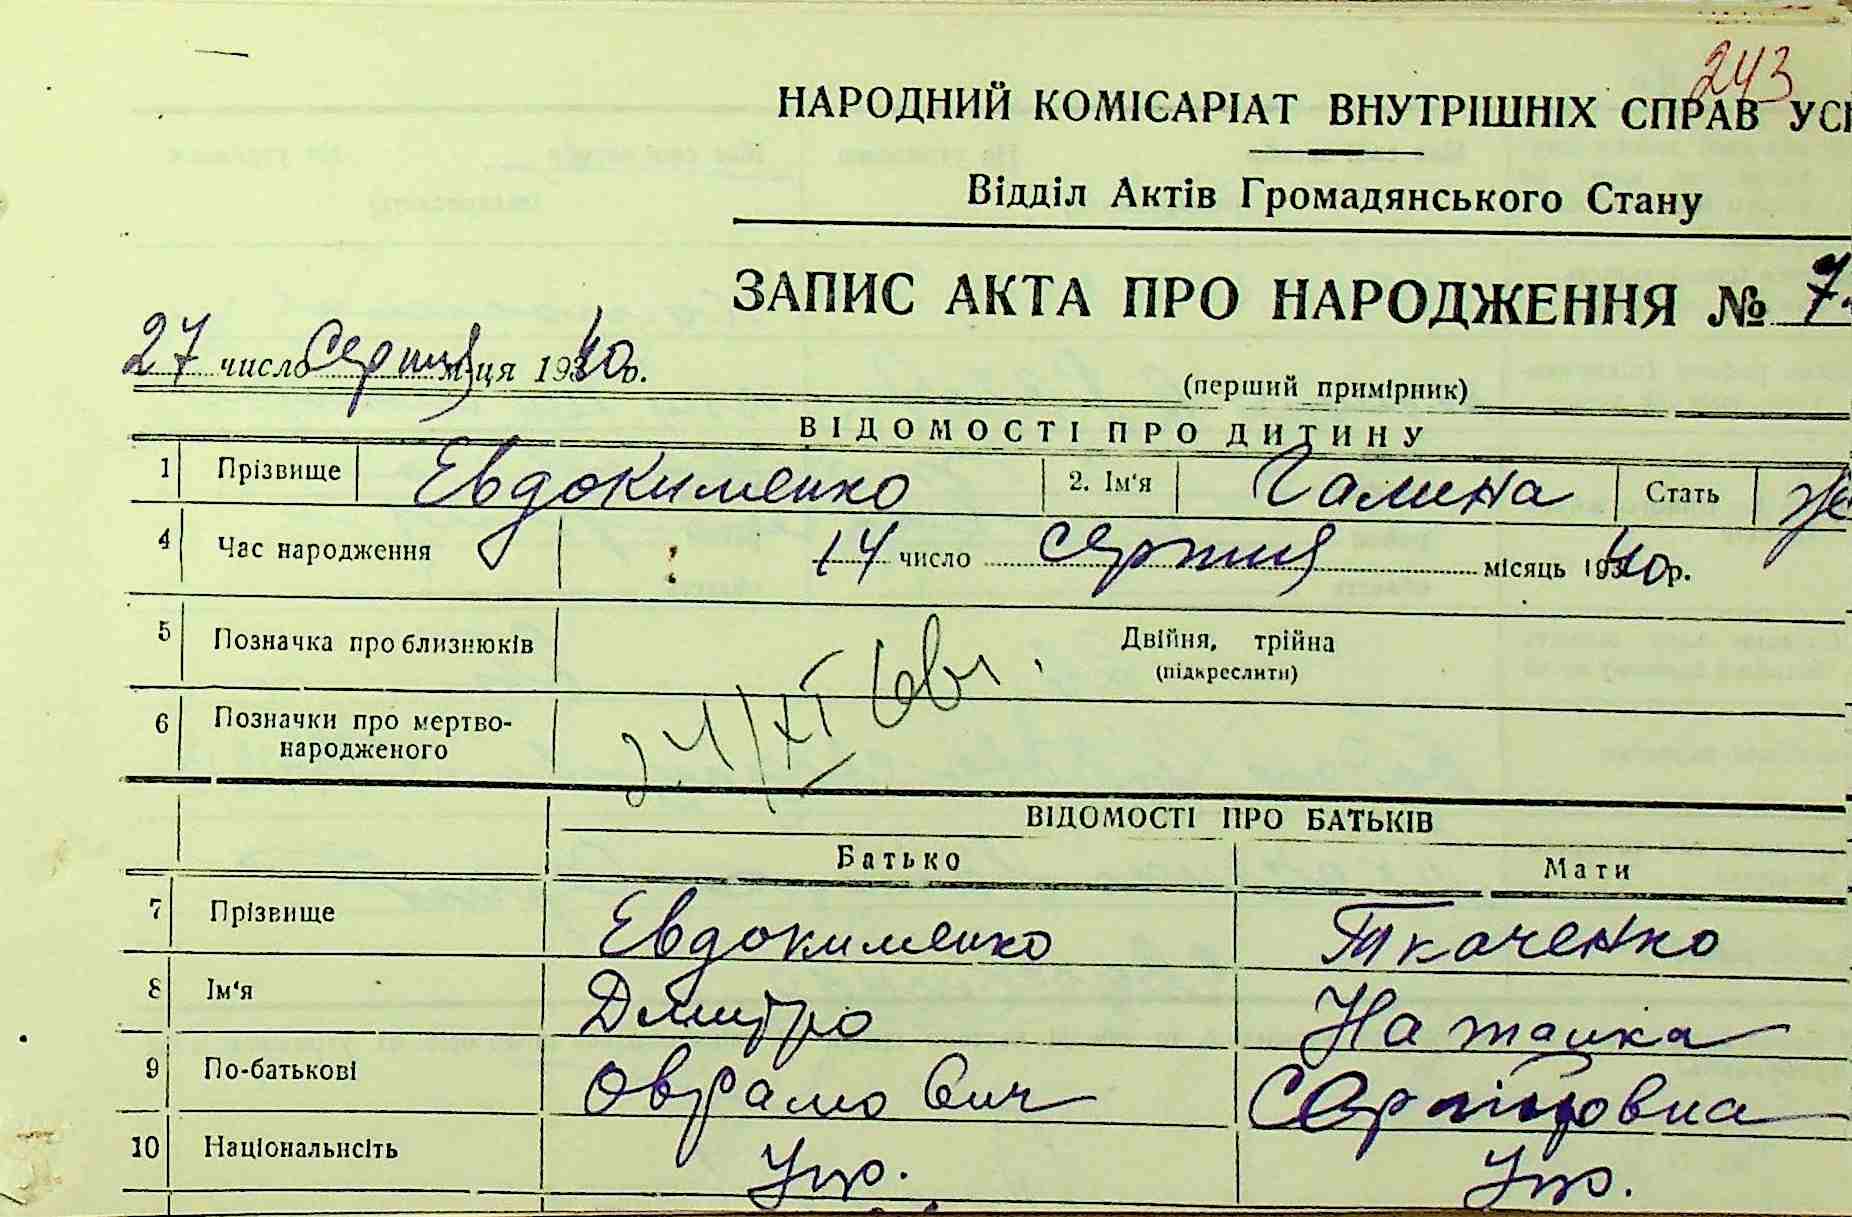 243
НАРОДНИЙ КОМІСАРІАТ ВНУТРІШНІХ СПРАВ УСР
Відділ Актів Громадянського Стану
ЗАПИС АКТА ПРО НАРОДЖЕННЯ № 7
27 число Серпня м-ця 1940 р.
(перший примірник)
ВІДОМОСТІ ПРО ДИТИНУ
1 Прізвище Евдокименко 2. Ім'я Галина Стать Ж
4 Час народження 14 число серпня місяць 1940 р.
5 Позначка про близнюків Двійня, трійна
(підкреслити)
6 Позначки про мертво-
народженого
24/XI
ВІДОМОСТІ ПРО БАТЬКІВ
Батько Мати
7 Прізвище Евдокименко Ткаченко
8 Ім'я Дмитро Наталка
9 По-батькові Оврамович
10 Національнсіть Укр. Укр.